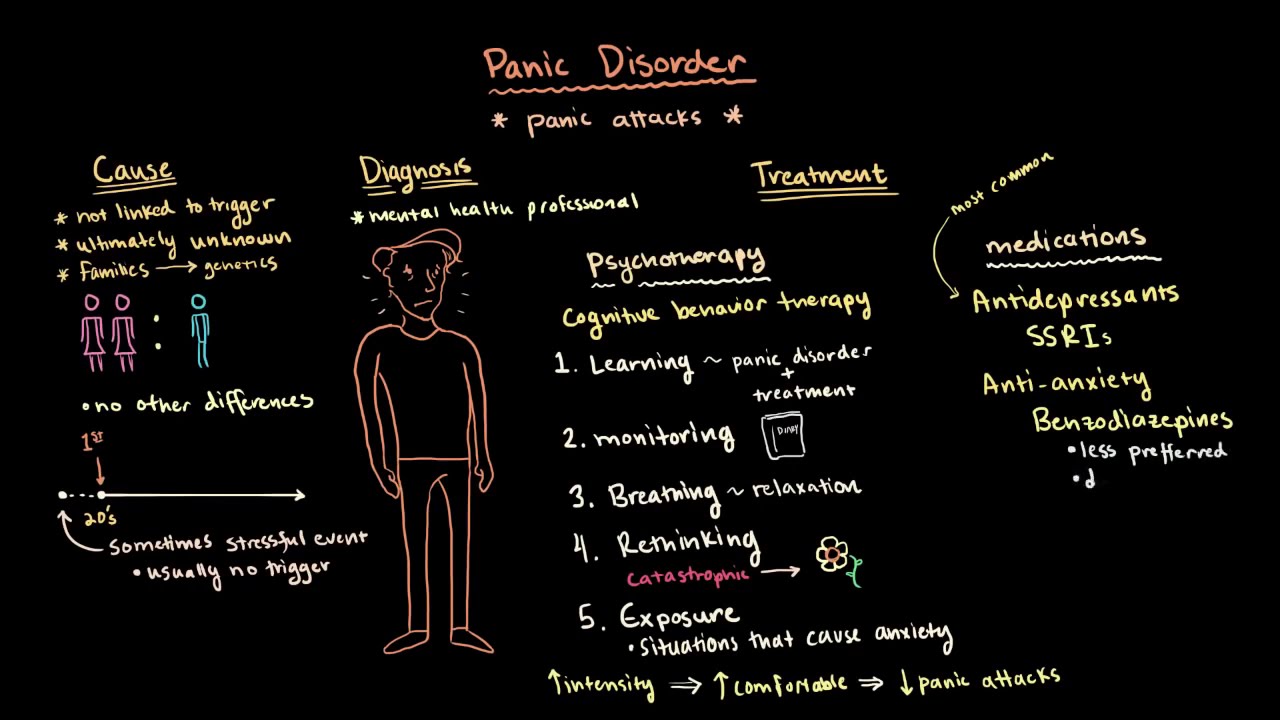 Panic Disorder
* panic attacks *
Cause
* not linked to trigger
* ultimately unknown
* Families → genetics
:
• no other differences
1st
20's
Sometimes stressful event
• usually no trigger
Diagnosis
* mental health professional
Treatment
Psychotherapy
Cognitive behavior therapy
1. Learning ~ panic disorder
+
treatment
2. monitoring
Diary
3. Breathing ~ relaxation
4. Rethinking
catastrophic →
5. Exposure
• Situations that cause anxiety
↑ intensity ⇒ ↑ comfortable ⇒ ↓ panic attacks
most common
medications
Antidepressants
SSRIs
Anti-anxiety
Benzodiazepines
• less prefferred
• d